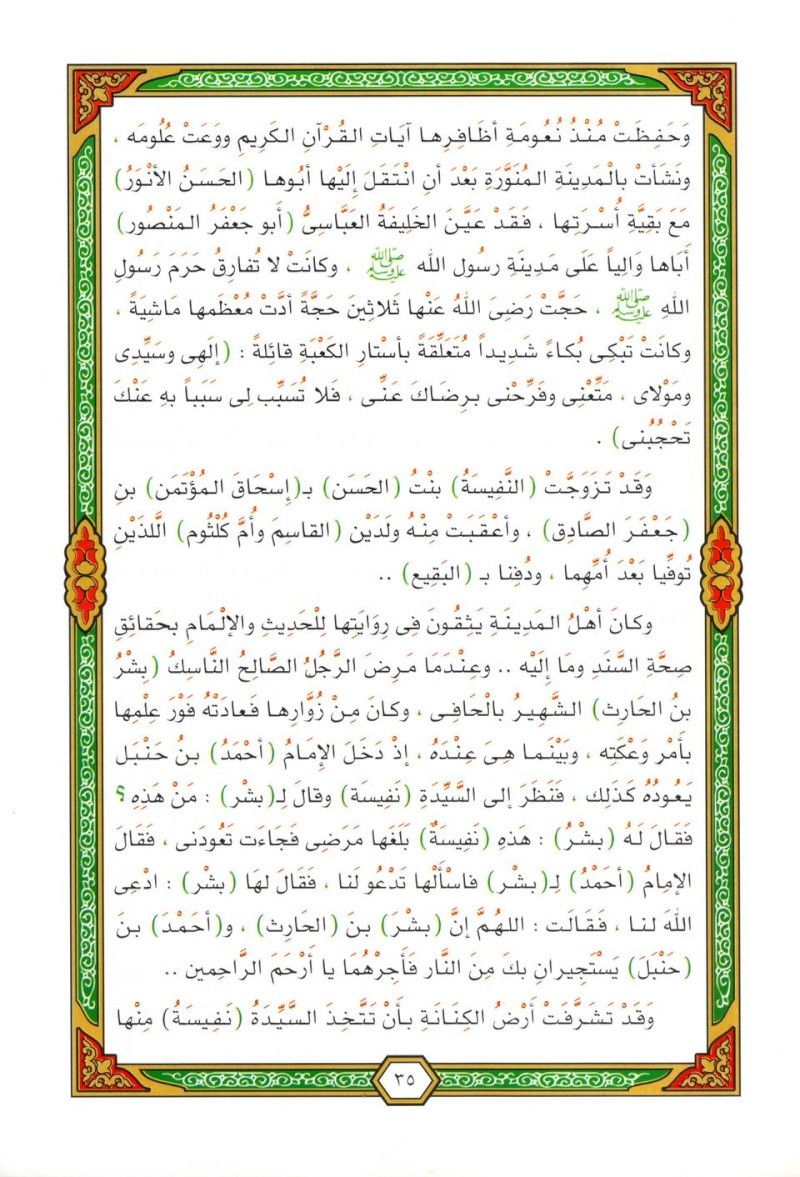 وَحَفِظَتْ مُنْذُ نُعُومَةِ أظَافِرِها آيَاتِ القُرْآنِ الكَرِيمِ ووَعَتْ عُلُومَه ،
ونَشَأتْ بالْمَدِينَةِ المُنَوَّرَةِ بَعْدَ أنِ انْتَقَلَ إلَيْها أبُوها (الحَسَنُ الأنْوَرُ)
مَعَ بَقِيَّةِ أُسْرَتِها ، فَقَدْ عَيَّنَ الخَلِيفَةُ العَبَّاسِىُّ (أبو جَعْفَرُ المَنْصُور)
أبَاها وَالِياً عَلَى مَدِينَةِ رسُولِ الله ﷺ ، وكانَتْ لا تُفارِقُ حَرَمَ رَسُولِ
اللهِ ﷺ ، حَجَّتْ رَضِىَ اللهُ عَنْها ثَلاثِينَ حَجَّةً أدَّتْ مُعْظَمها مَاشِيَةً ،
وكانَتْ تَبْكِى بُكاءً شَدِيداً مُتَعَلِّقَةً بأسْتارِ الكَعْبَةِ قائِلةً : (إلَهِى وسَيِّدِى
ومَوْلاى ، مَتِّعْنِى وفَرِّحْنى بـرِضَاكَ عَنِّى ، فَلا تُسَبِّب لِى سَبَباً بهِ عَنْكَ
تَحْجُبُنى) .
وَقَدْ تَـزَوَجَّتْ (النَّفِيسَةُ) بِنْتُ (الحَسَن) بـ(إسْحَاقَ المُؤْتَمَن) بنِ
(جَعْفَـرَ الصَّادِق) ، وأعْقَبَتْ مِنْهُ ولَدَيْن (القاسِمَ وأُمَّ كُلْثُوم) اللَّذَيْنِ
تُوفِّيا بَعْدَ أُمِّهِما ، ودُفِنا بـ (البَقِيع) ..
وكانَ أهْلُ المَدِينَةِ يَثِقُونَ فِى رِوَايَتِها لِلْحَدِيثِ والإلْمَامِ بحَقائِقِ
صِحَّةِ السَّنَدِ ومَا إلَيْه .. وعِنْدَمَا مَرِضَ الرَّجُلُ الصَّالِحُ النَّاسِكُ (بِشْرُ
بنُ الحَارِث) الشَّهِيرُ بالْحَافِى ، وكانَ مِـنْ زُوَّارِهـا فَعادَتْهُ فَوْرَ عِلْمِها
بأمْرِ وَعْكَتِه ، وبَيْنَـما هِىَ عِنْدَهُ ، إذْ دَخَلَ الإمَامُ (أحْمَدُ) بـن حَنْبَـل
يَعُودُهُ كَذَلِك ، فَنَظَرَ إلى السَّيِّدَةِ (نَفِيسَة) وقالَ لِـ(بِشْر) : مَنْ هَذِهِ ؟
فَقالَ لَـهُ (بِشْرُ) : هَذهِ (نَفِيسَةُ) بَلَغَها مَرَضِى فجَاءَت تَعُودَنى ، فَقالَ
الإمَامُ (أحْمَدُ) لِـ(بِشْر) فاسْألْها تَدْعُو لَنا ، فَقالَ لهَا (بِشْر) : ادْعِى
اللهَ لَنا ، فَقَالَت : اللهُمَّ إنَّ (بِشْرَ) بنَ (الحَارِث) ، و(أحَمْدَ) بنَ
(حَنْبَلَ) يَسْتَجِيرانِ بكَ مِنَ النَّار فَأجِرْهُمَا يا أرْحَمَ الرَّاحِمِين ..
وَقَدْ تَشَرَّفَتْ أرْضُ الكِنَانَةِ بـأنْ تَتَّخِذَ السَّيِّدَةُ (نَـفِيسَةُ) مِنْها
٣٥